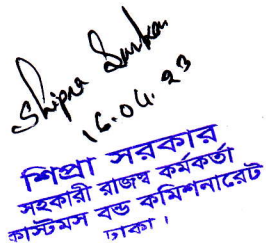 Shipra Sarkar
16.04.23
শিপ্রা সরকার
সহকারী রাজস্ব কর্মকর্তা
কাস্টমস বন্ড কমিশনারেট
ঢাকা।